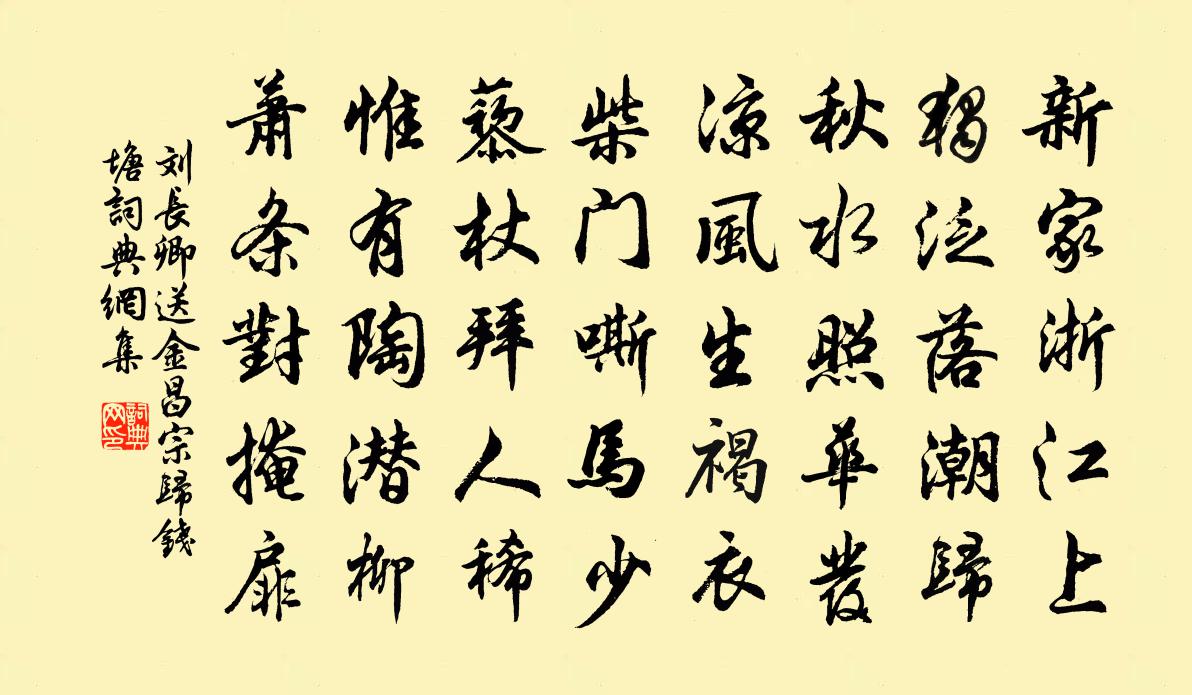 新家浙江上
獨泛落潮歸
秋水照華發
涼風生褐衣
柴门嘶馬少
藜杖拜人稀
惟有陶潜柳
蕭条對掩扉
刘長卿送金昌宗歸錢
塘詞典網集
詞典
网印